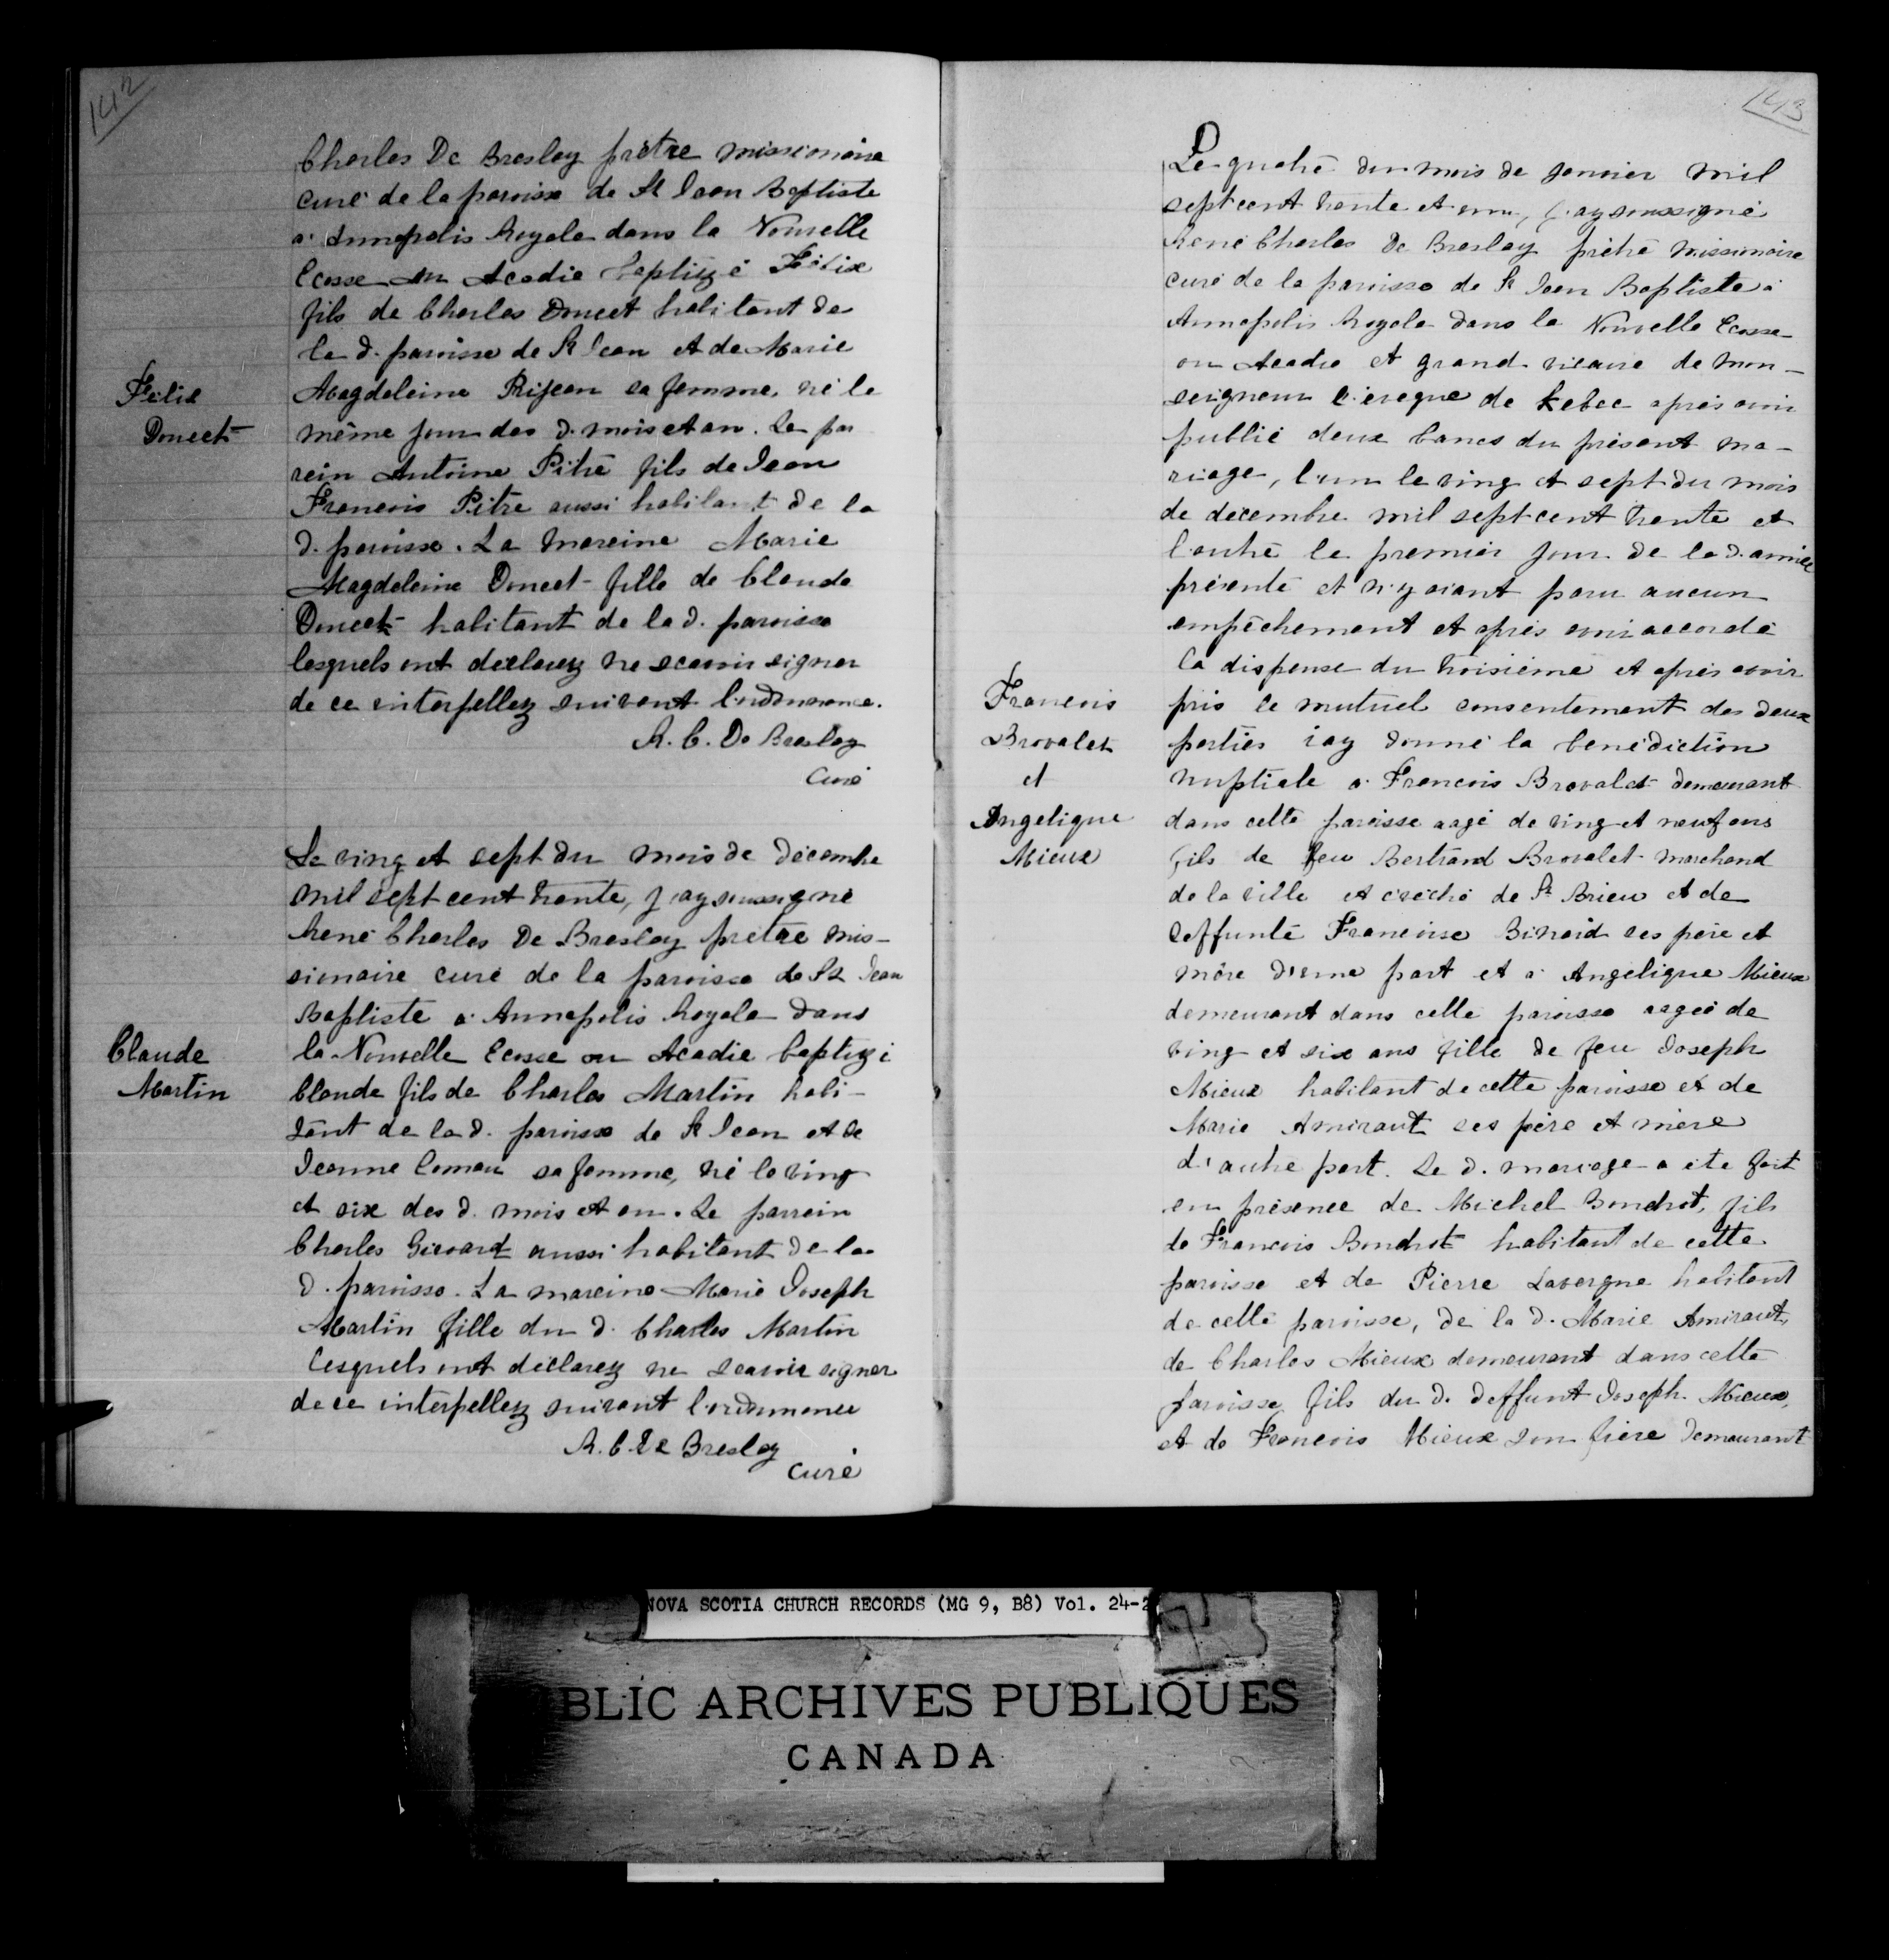 142
Charles De Breslay prêtre missionaire
curé de la paroisse de St Jean Baptiste
a Annapolis Royale dans la Nouvelle
Ecosse ou Acadie baptizé Félix
fils de Charles Doucet habitant de
la d. paroisse de St Jean et de Marie
Félix
Doucet
Magdeleine Rijean sa femme, né le
même jour des d. mois et an. Le par
rein Antoine Pitre fils de Jean
Francois Pitre aussi habitant de la
d. paroisse. La mareine Marie
Magdeleine Doucet fille de Claude
Doucet habitant de la d. paroisse
lesquels ont déclarez ne scavoir signer
de ce interpellez suivant l'ordonnance.
R. C. De Breslay
Curé
Le ving et sept du mois de décembre
mil sept cent trente, j'ay soussigné
René Charles De Breslay prêtre mis-
sionaire curé de la paroisse de St Jean
Baptiste a Annapolis Royale dans
Claude
Martin
la Nouvelle Ecosse ou Acadie baptizé
Claude fils de Charles Martin habi-
tant de la d. paroisse de St Jean et de
Jeanne Comau sa femme, né le ving
et six des d. mois et an. Le parrein
Charles Girouard aussi habitant de la
d. paroisse. La mareine Marie Joseph
Martin fille du d. Charles Martin
lesquels ont déclarez ne scavoir signer
de ce interpellez suivant l'ordonnance
R. C. De Breslay
curé
143
Le quatre du mois de janvier mil
sept cent trente et un, j'ay soussigné
René Charles De Breslay prêtre missionaire
curé de la paroisse de St Jean Baptiste à
Annapolis Royale dans la Nouvelle Ecosse
ou Acadie et grand vicaire de mon-
seigneur l'évêque de Kebec après avoir
publié deux bancs du présent ma-
riage, l'un le ving et sept du mois
de décembre mil sept cent trente et
l'autre le premier jour de la d. année
présente et n'y aiant paru aucun
empêchement et après avoir accordé
la dispense du troisième et après avoir
Francois
Brovalet
et
Angelique
Mieux
pris le mutuel consentement des deux
parties j'ay donné la bénédiction
nuptiale a Francois Brovalet demeurant
dans cette paroisse aagé de ving et neuf ans
fils de feu Bertrand Brovalet marchand
de la ville et evêché de St Brieu et de
deffunte Francoise Binard ses père et
mère d'une part et a Angélique Mieux
demeurant dans cette paroisse aagée de
ving et six ans fille de feu Joseph
Mieux habitant de cette paroisse et de
Marie Amiraut ses père et mère
d'autre part. Le d. mariage a été fait
en présence de Michel Boudrot, fils
de Francois Boudrot habitant de cette
paroisse et de Pierre Lavergne habitant
de cette paroisse, de la d. Marie Amiraut,
de Charles Mieux demeurant dans cette
paroisse, fils du d. deffunt Joseph Mieux,
et de Francois Mieux son frère demeurant
NOVA SCOTIA CHURCH RECORDS (MG 9, B8) Vol. 24-2
BLIC ARCHIVES PUBLIQUES
CANADA